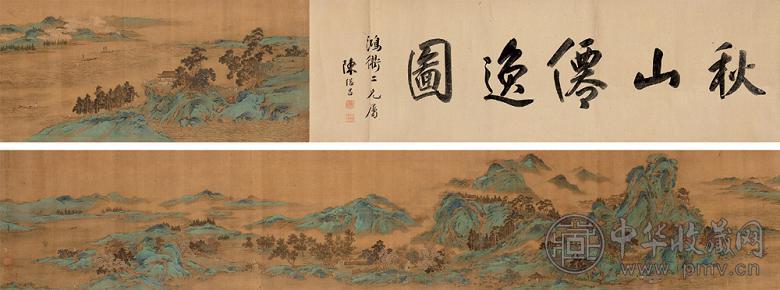 秋山僊逸圖
鴻衢二兄屬
陳
中华收藏网
www.pmv.cn